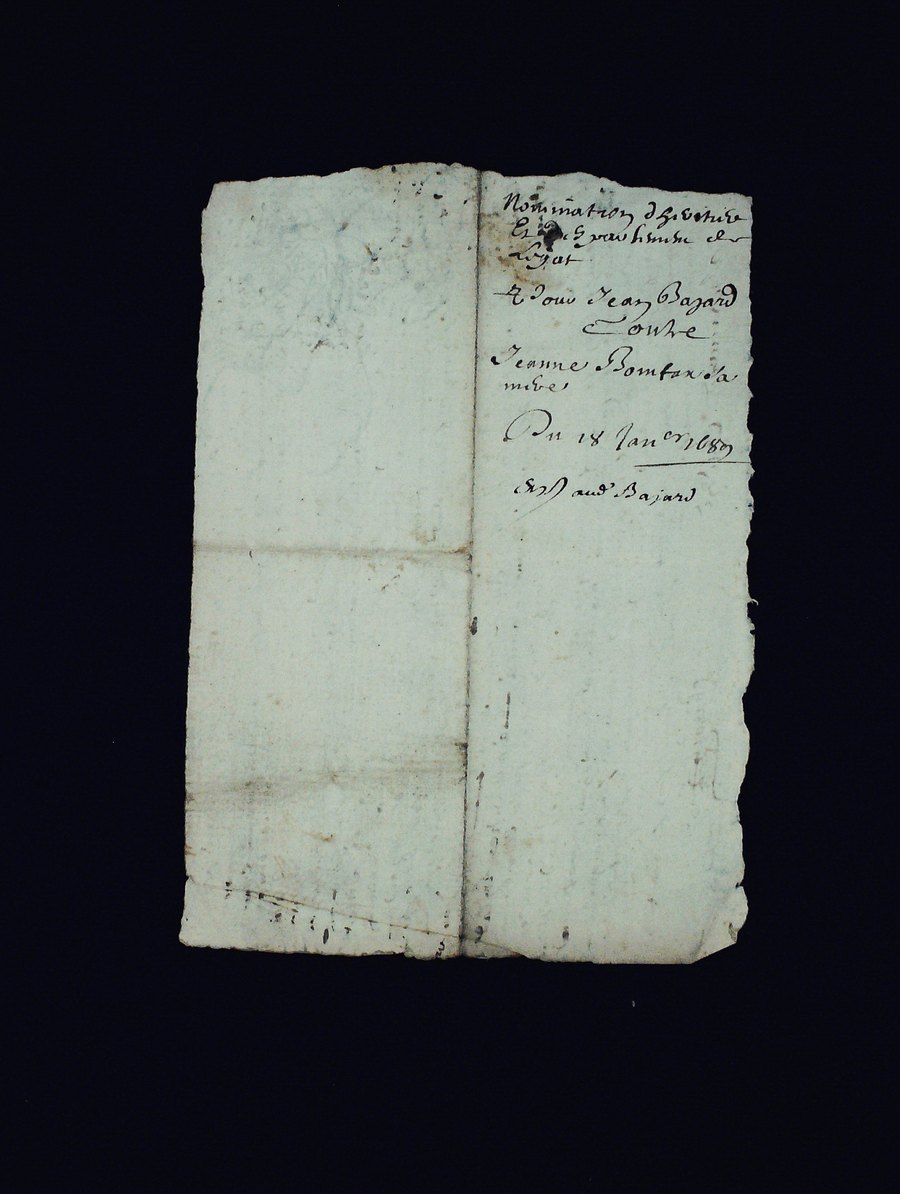 Nomination dheritier
Et de
Legat
Pour Jean Bajard
Contre
Jeanne Bomtan Sa
mere
Du 18 Janer 1689
aud Bajard